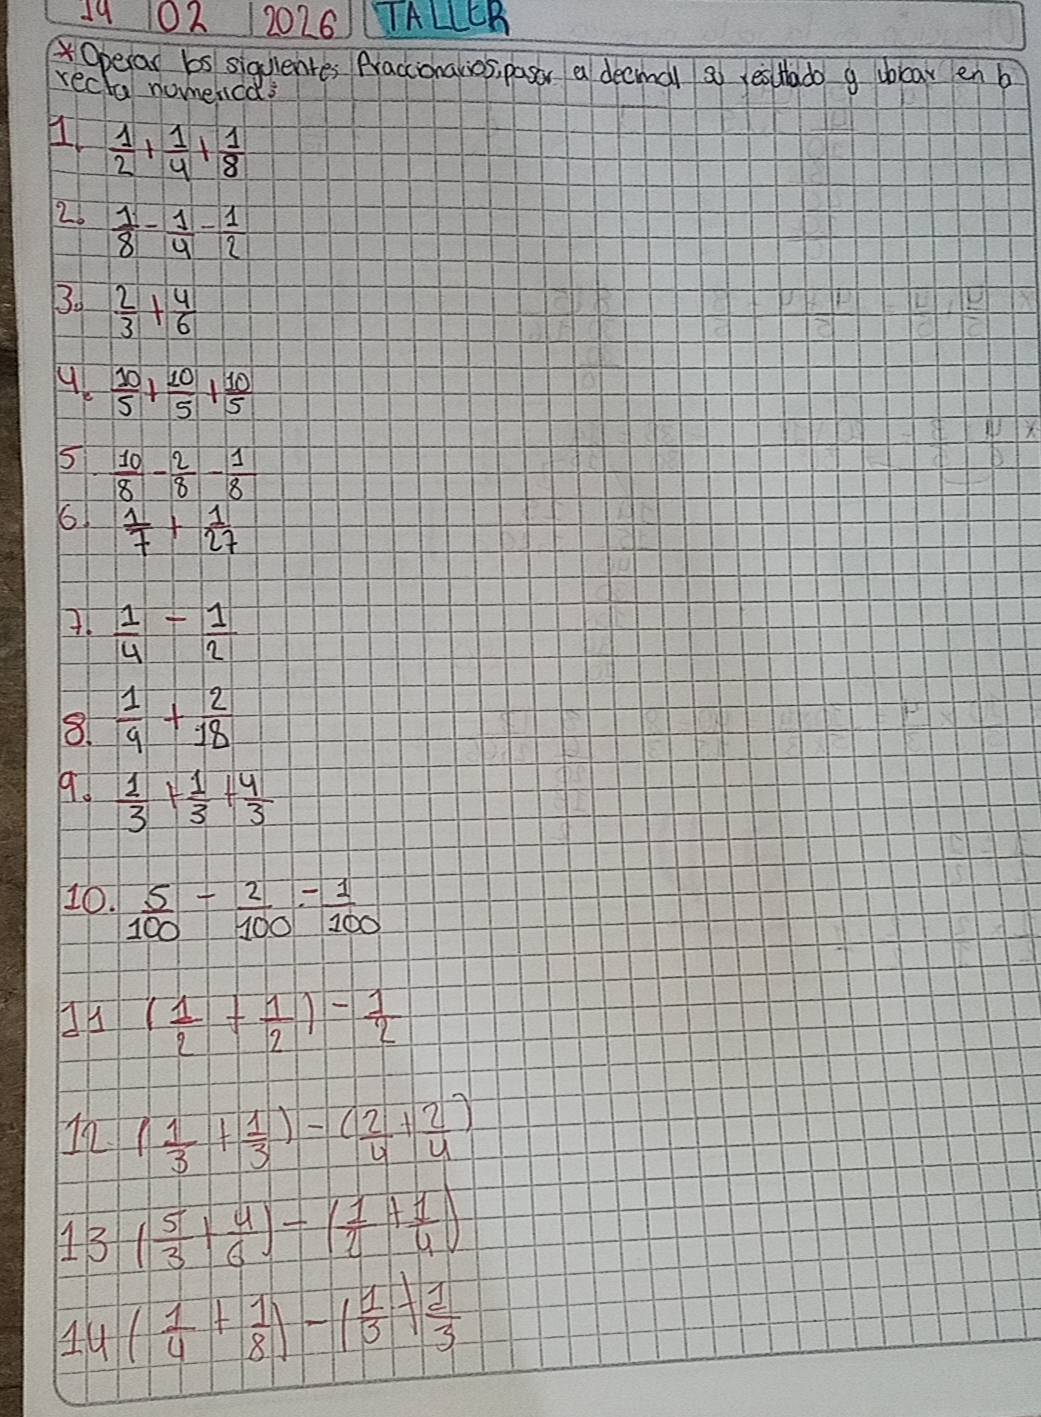 14 02 2026 TALLER
* Operar los siguientes fraccionarios, pasar a decimal su resultado y ubicar en la
recta numerica:
1. 1/2 + 1/4 + 1/8
2. 1/8 - 1/4 - 1/2
3. 2/3 + 4/6
4. 10/5 + 10/5 + 10/5
5 10/8 - 2/8 - 1/8
6. 1/7 + 1/27
7. 1/4 - 1/2
8. 1/9 + 2/18
9. 1/3 + 1/3 + 4/3
10. 5/100 - 2/100 - 1/100
11 (1/2 + 1/2) - 1/2
12. (1/3 + 1/3) - (2/4 + 2/4)
13 (5/3 + 4/6) - (1/2 + 1/4)
14 (1/4 + 1/8) - (1/3 + 1/3